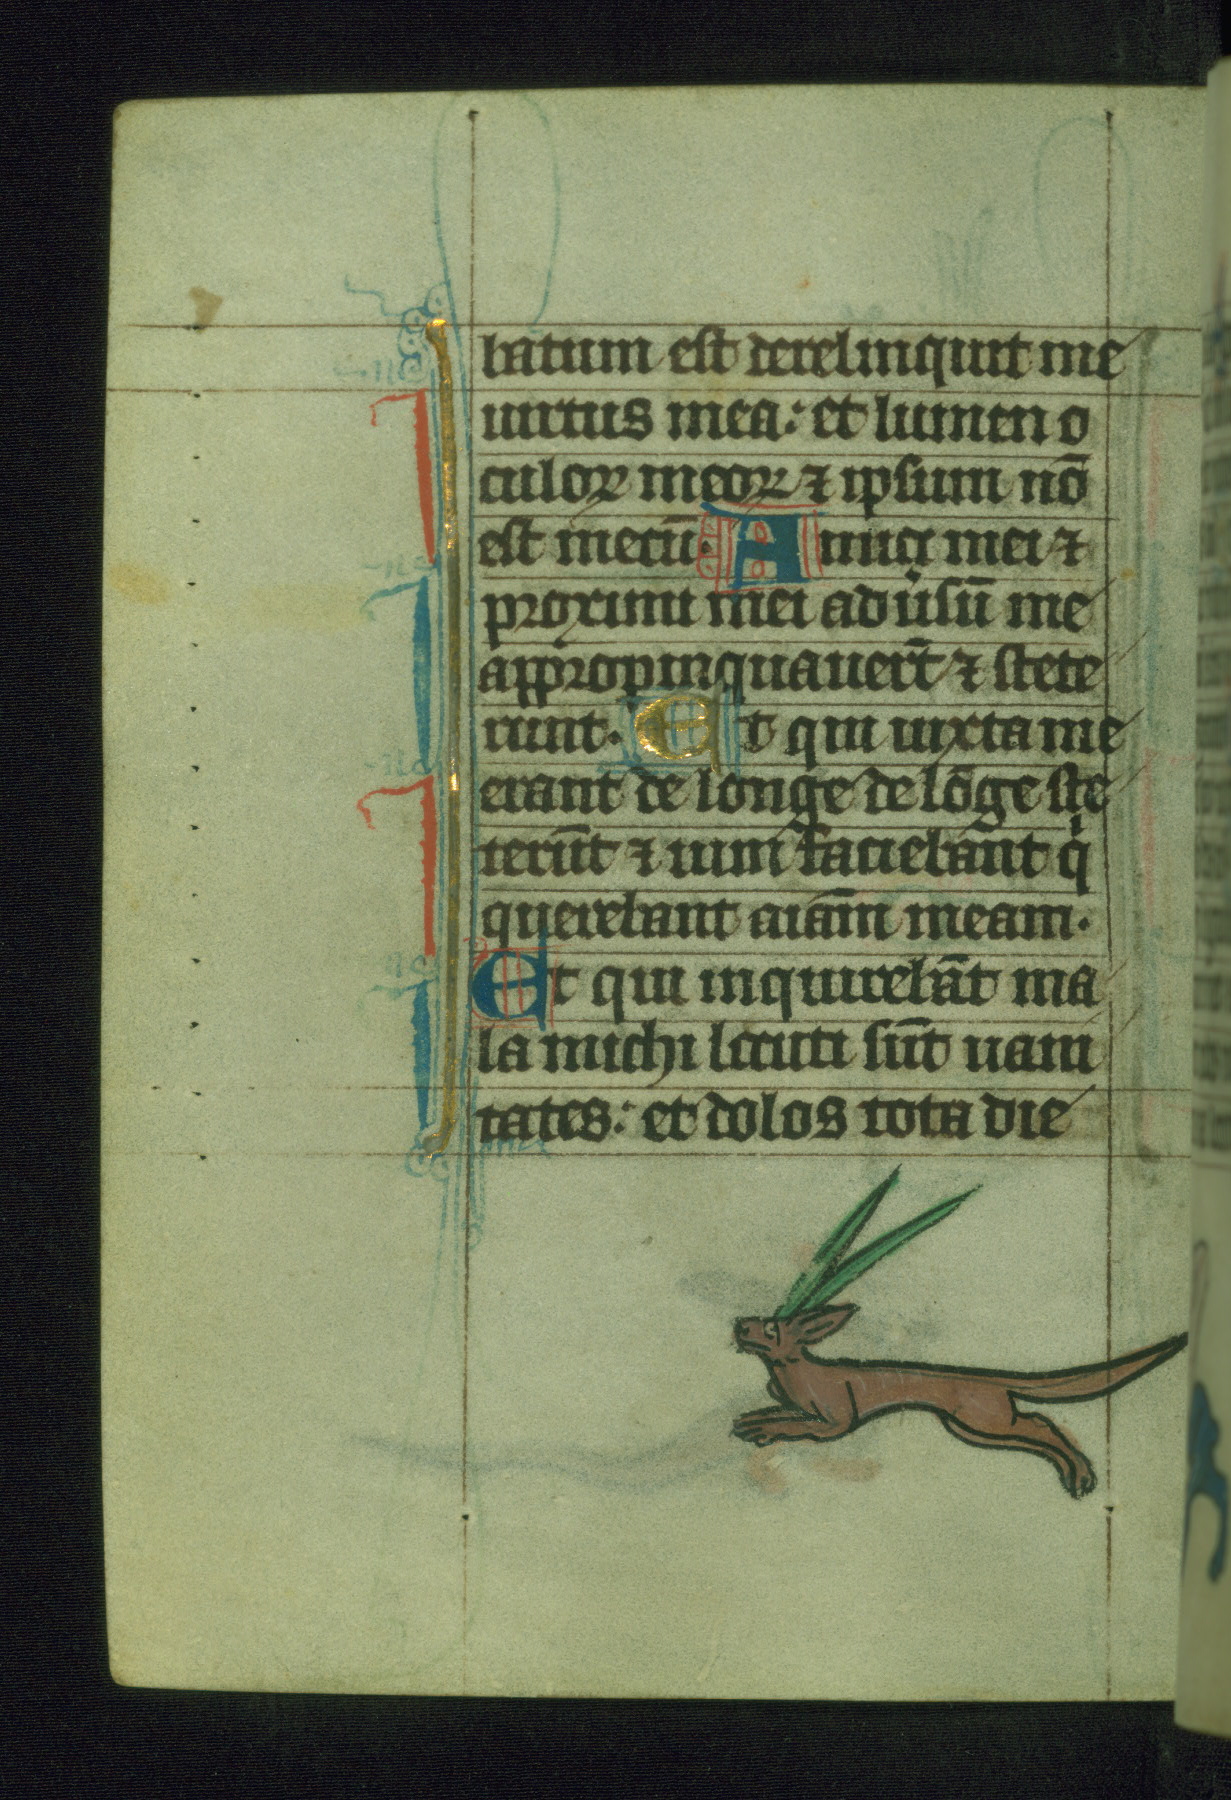 batum est derelinquit me
uirtus mea: et lumen o
culoꝝ meoꝝ ⁊ ipsum nō
est mecū. Amici mei ⁊
proximi mei aduͥsū me
appropinquauer̄t ⁊ stete
runt. Et qui iuxta me
erant de longe de lōge ste
terūt ⁊ uim faciebāt qͥ
querebant aīam meam.
Et qui inquirebāt ma
la michi locuti sūt uani
tates: et dolos tota die